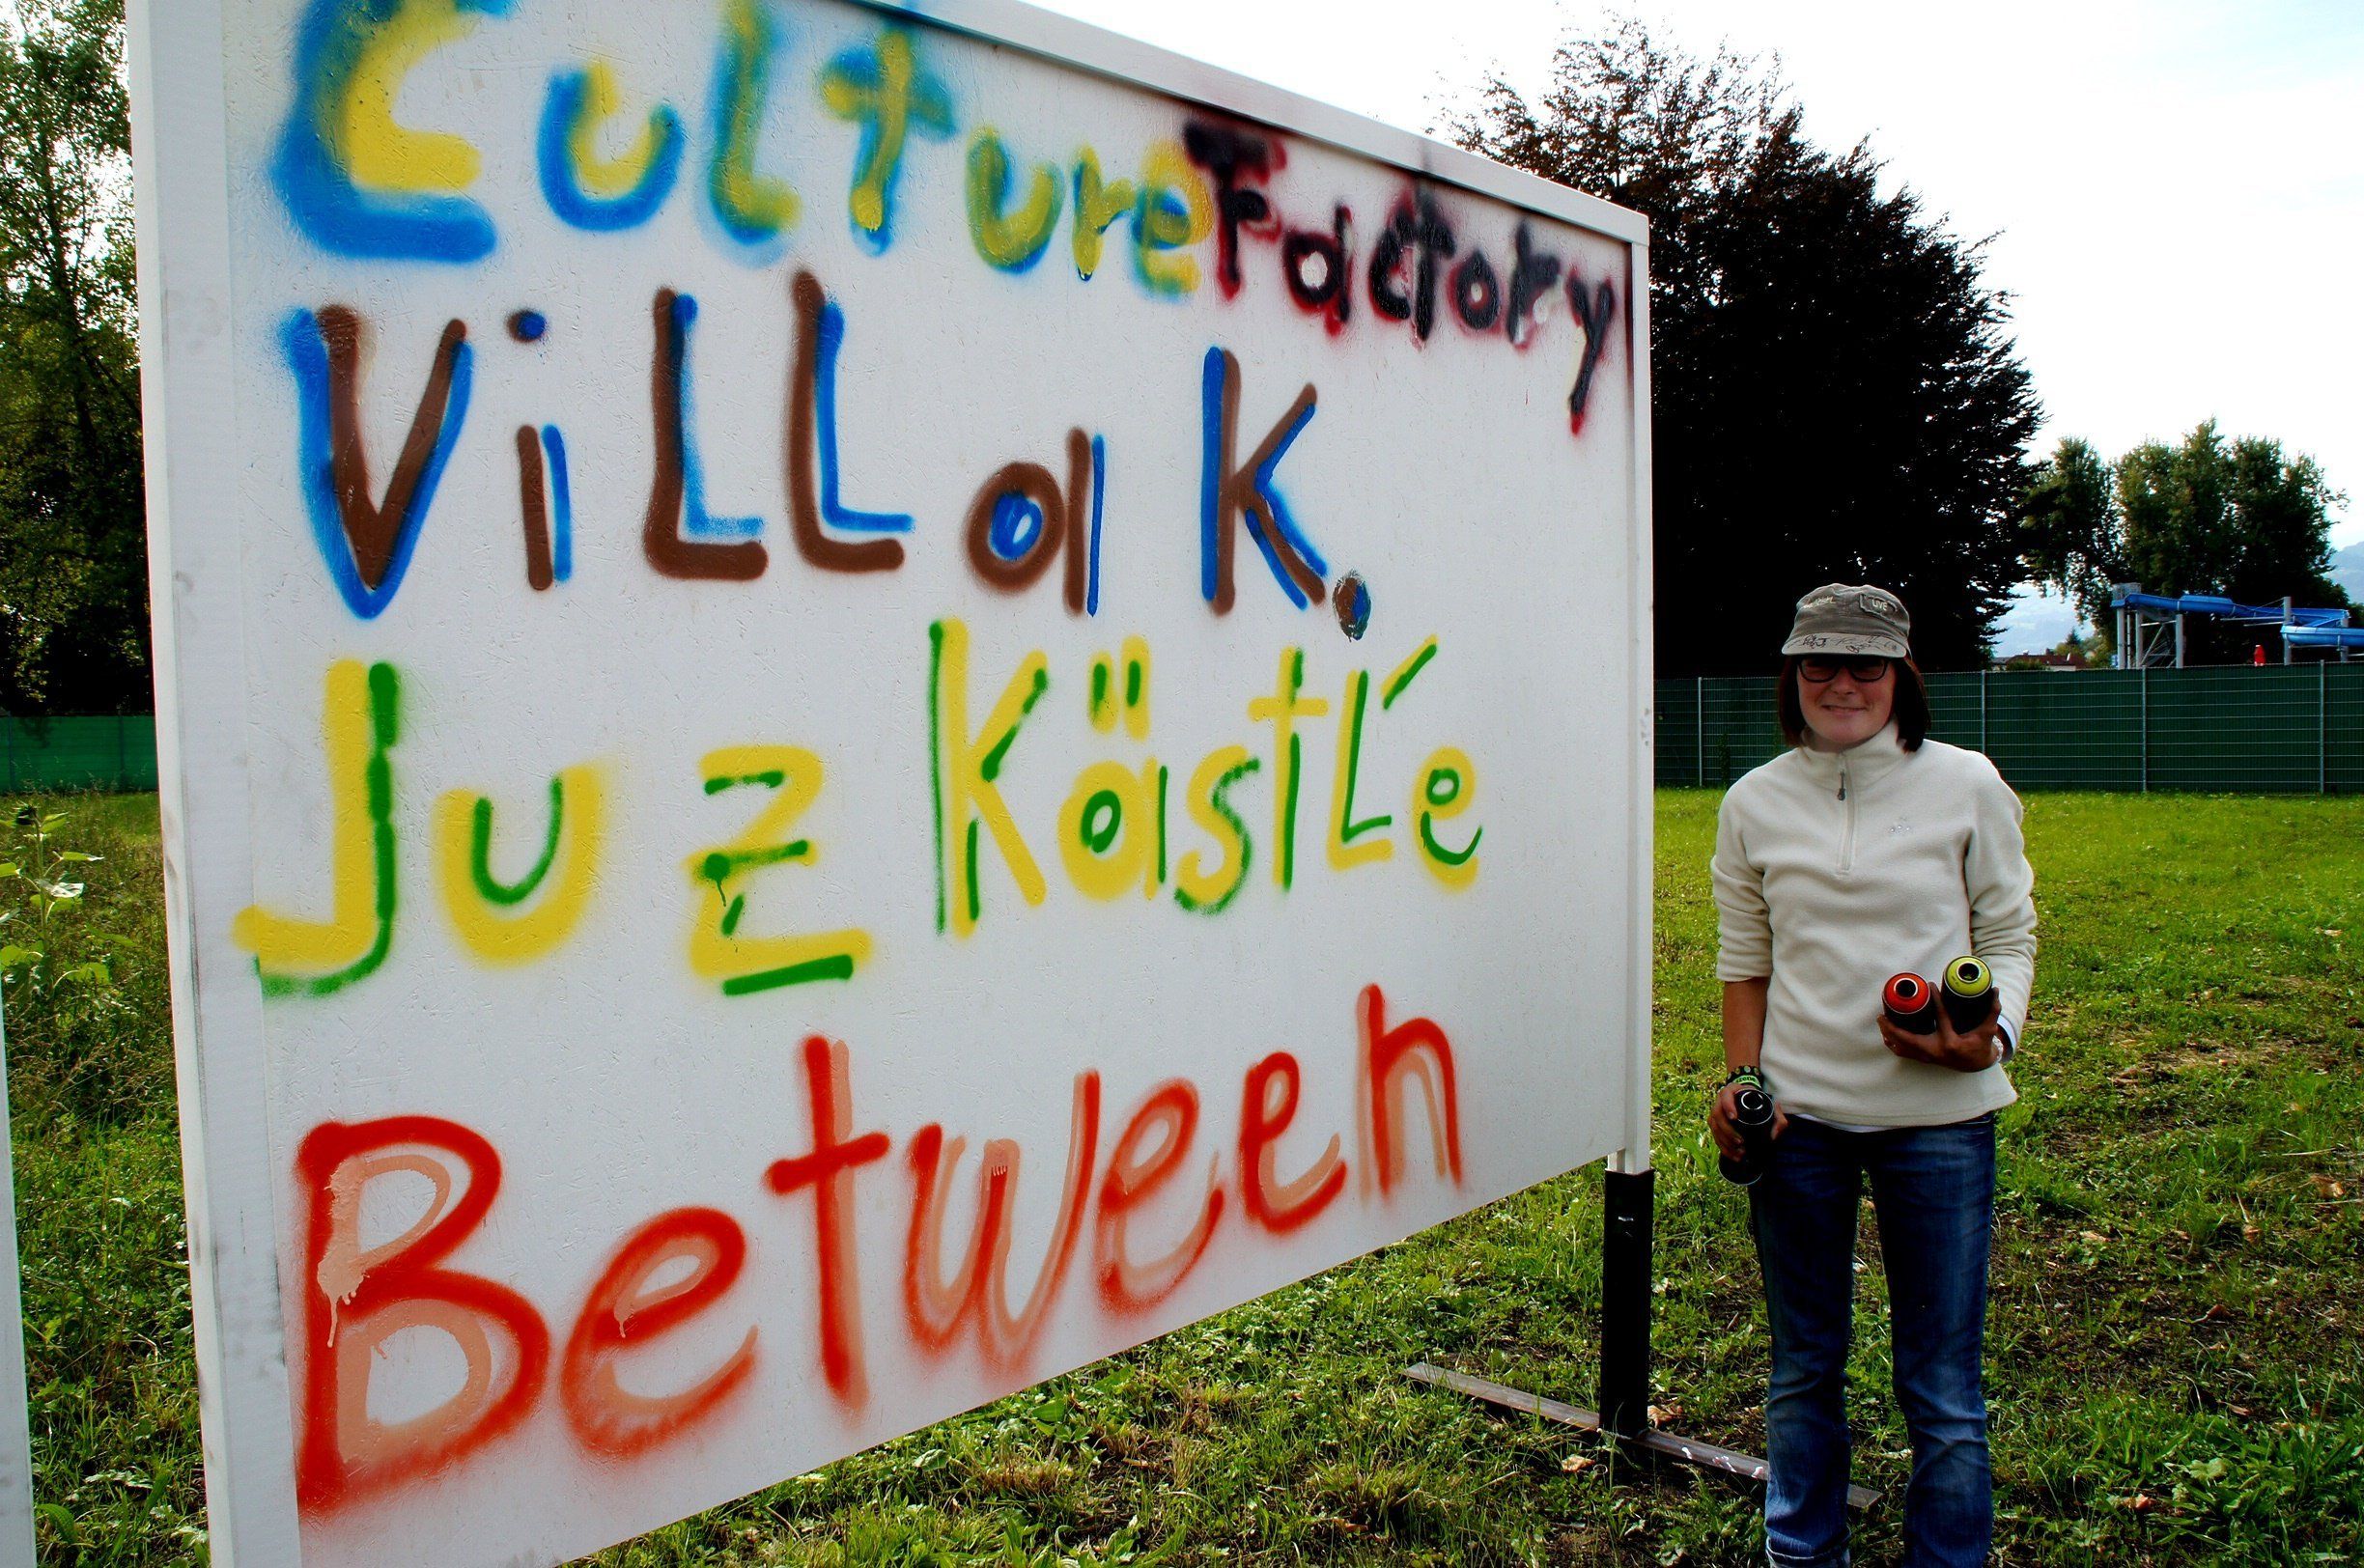 Culture Factory
ViLLa K.
Juz KästL'e
Between
LIVE